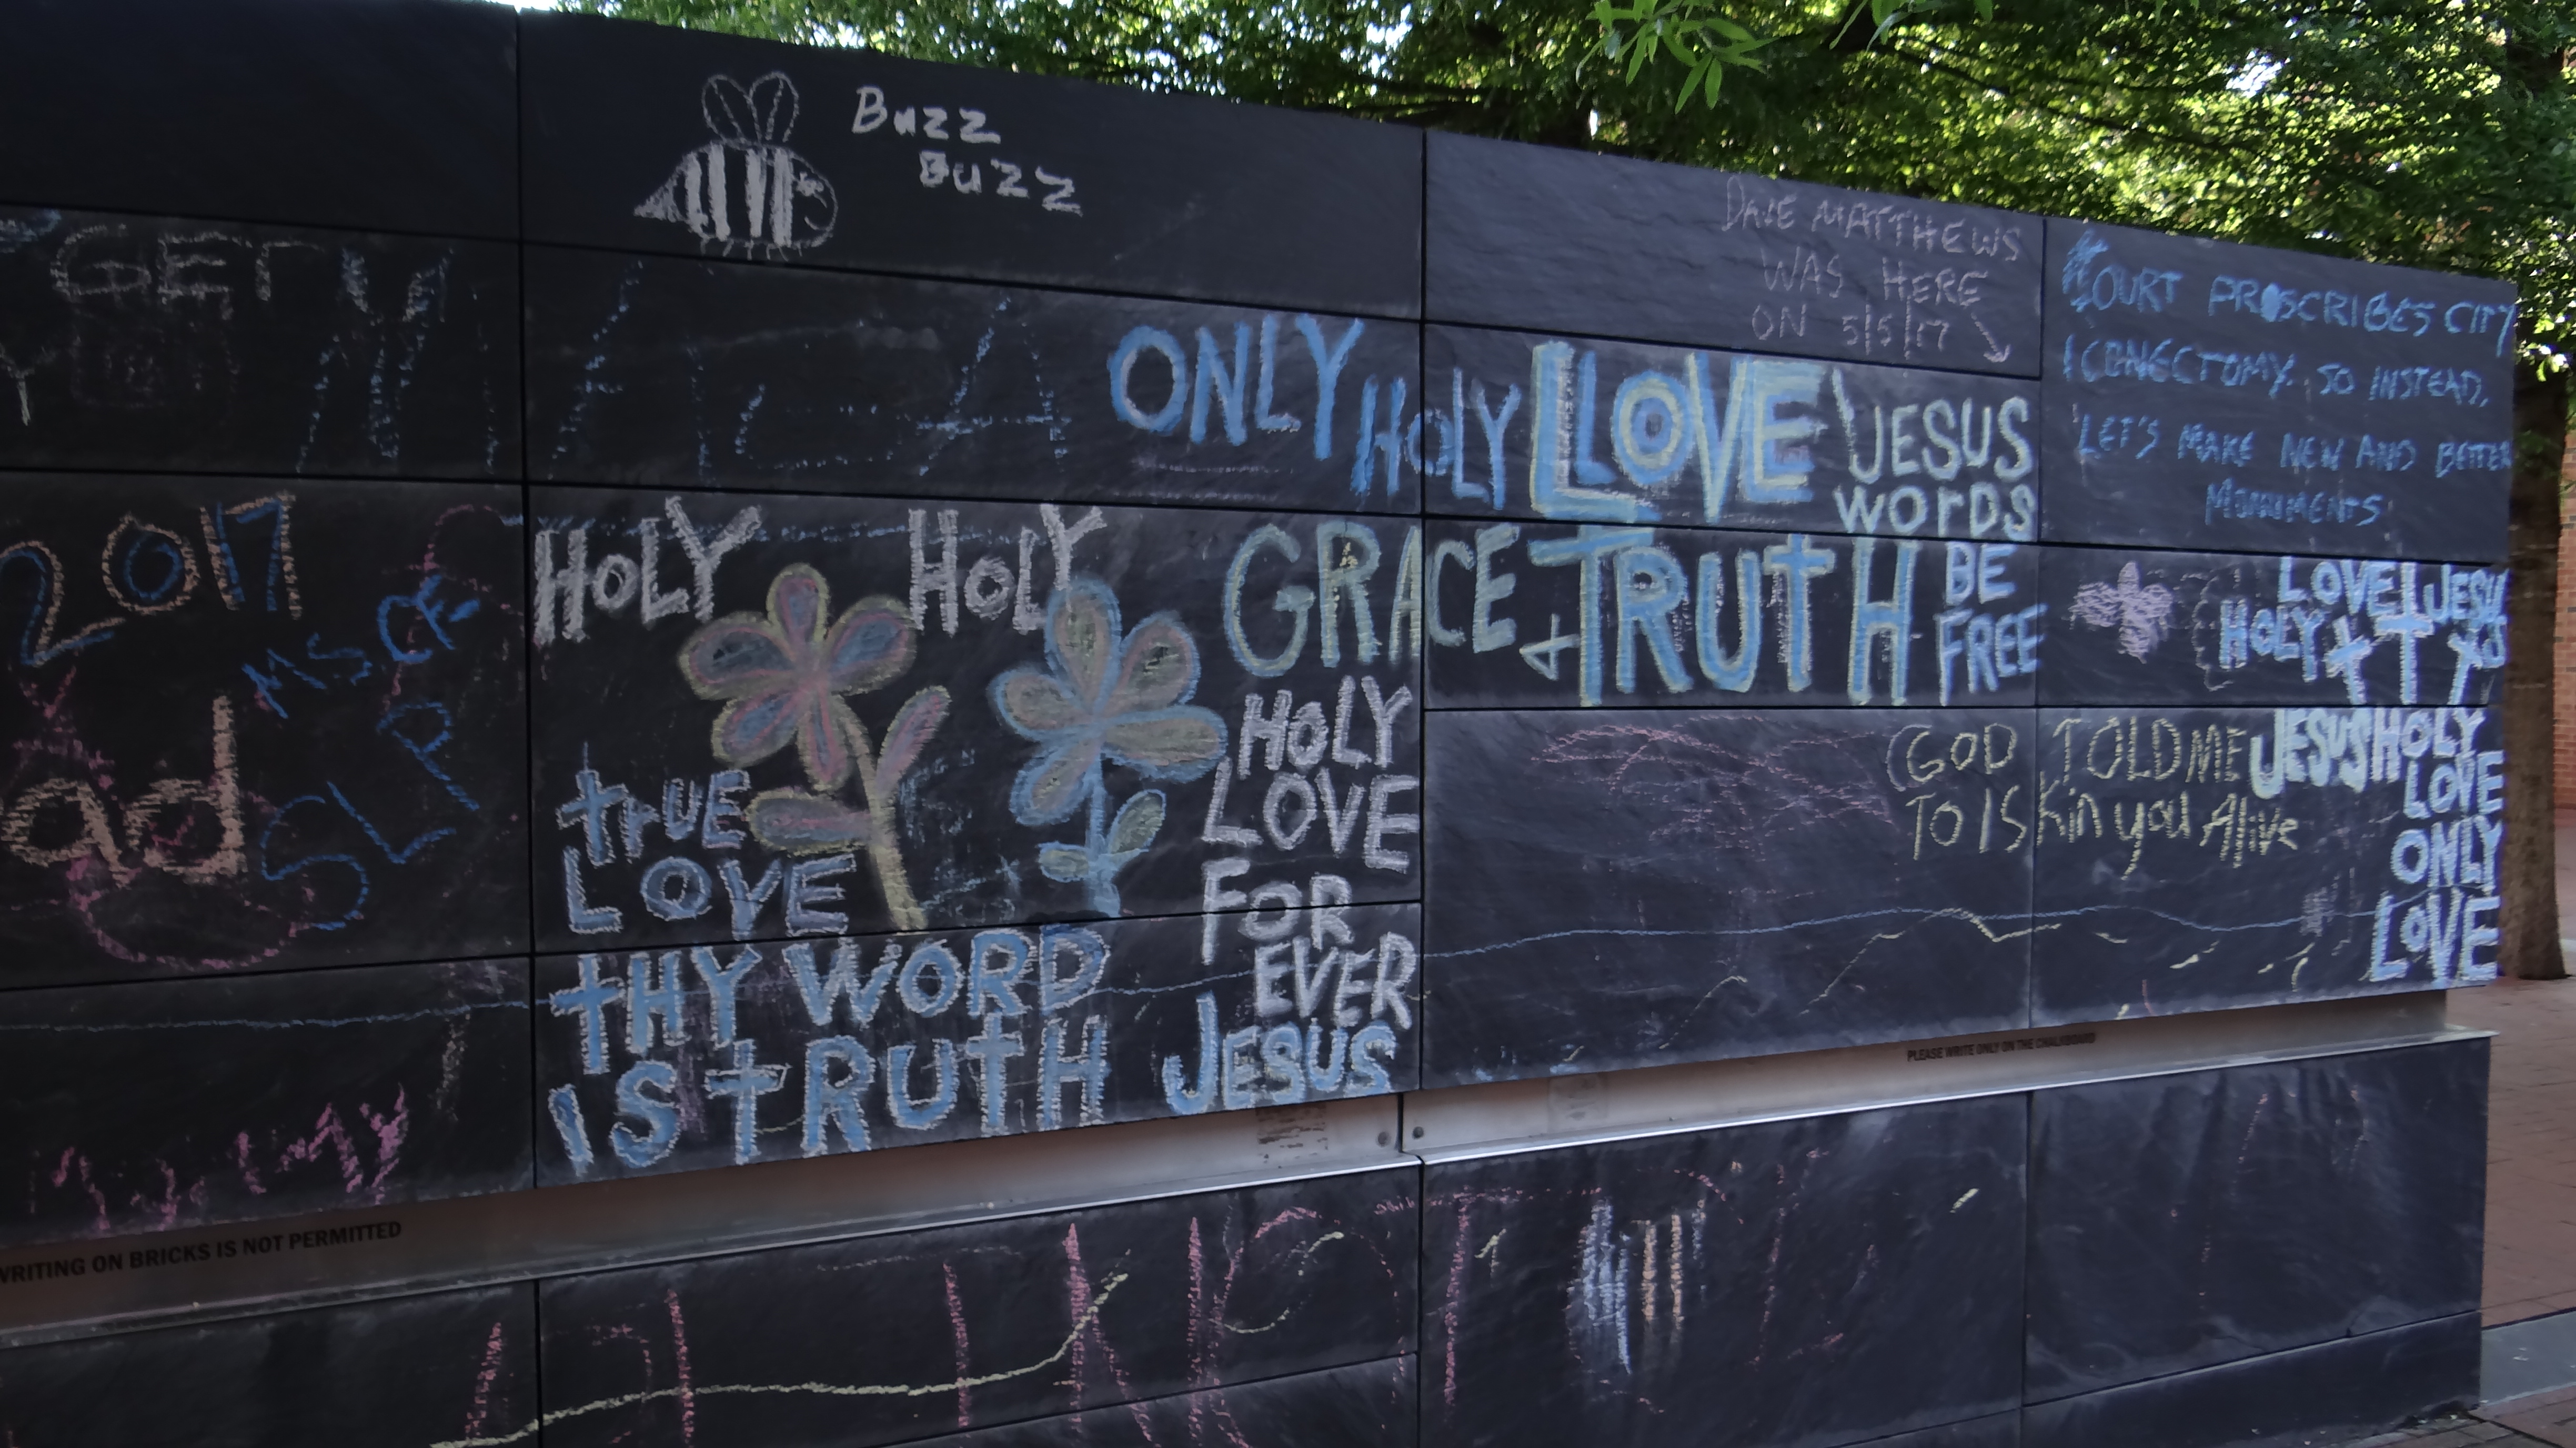 Buzz
Buzz
DAVE MATTHEWS
WAS HERE
ON 5/5/17
COURT PROSCRIBES CITY
ICONECTOMY. SO INSTEAD,
LET'S MAKE NEW AND BETTER
MONUMENTS.
GET
MAGA
ONLY HOLY LOVE JESUS
WORDS
2017
MSCF
HOLY HOLY
GRACE + TRUTH BE
FREE
LOVE JESUS
HOLY
ad
SLP
HOLY
LOVE
FOR
EVER
JESUS
trUE
LOVE
tHY WORD
IS tRUtH
(GOD TOLD ME
TO IS Kin you Alive
JESUS HOLY
LOVE
ONLY
LOVE
PLEASE WRITE ONLY ON THE CHALKBOARD
WRITING ON BRICKS IS NOT PERMITTED